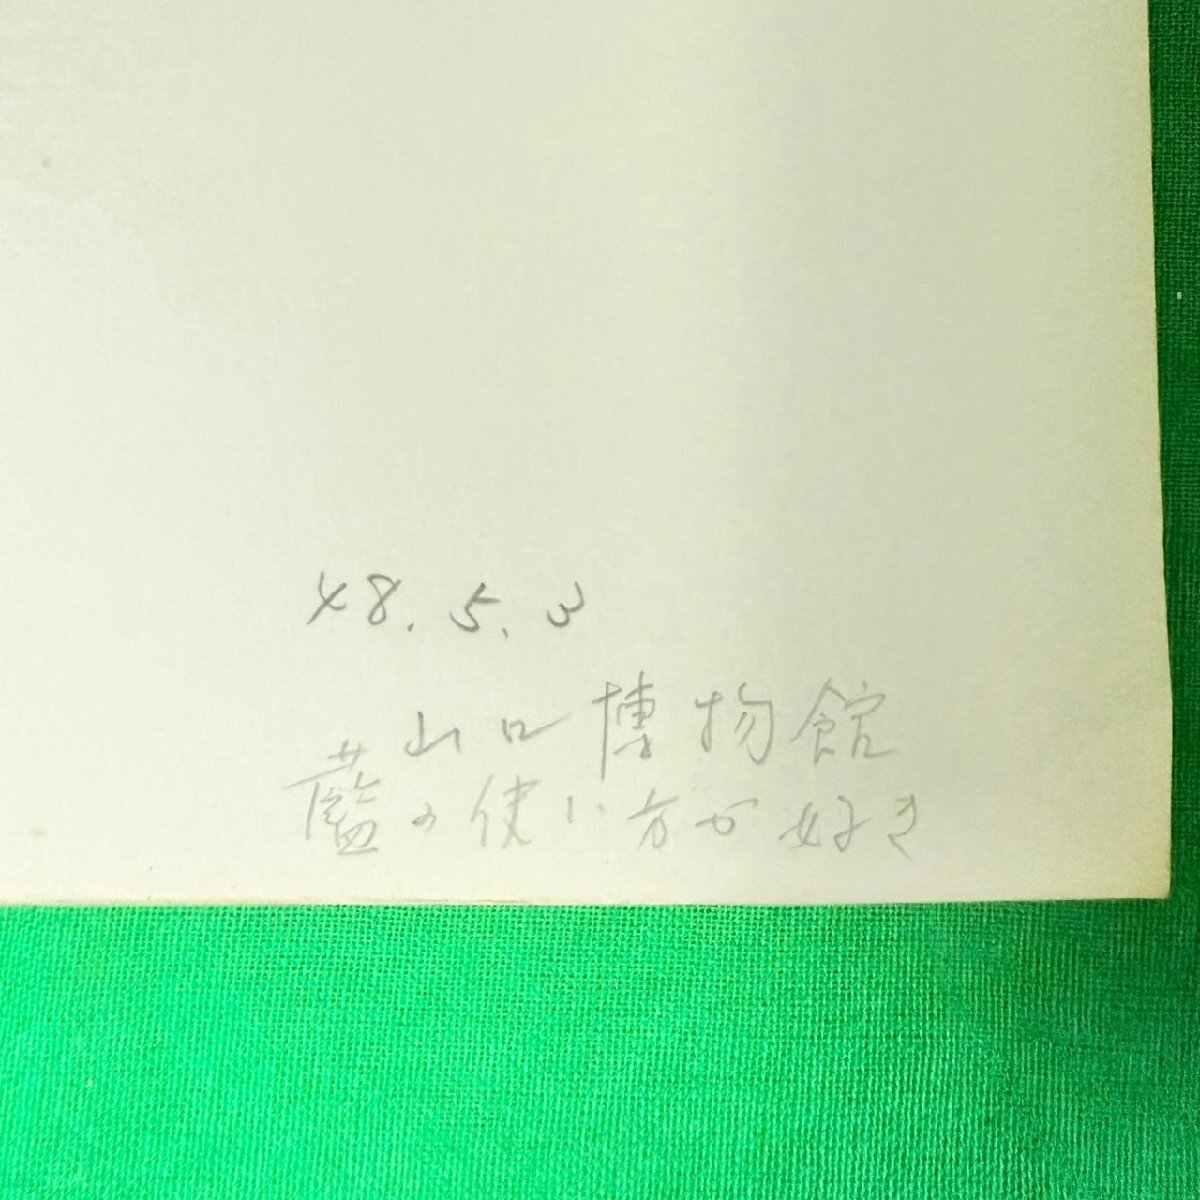 48.5.3
山口博物館
藍の使い方が好き